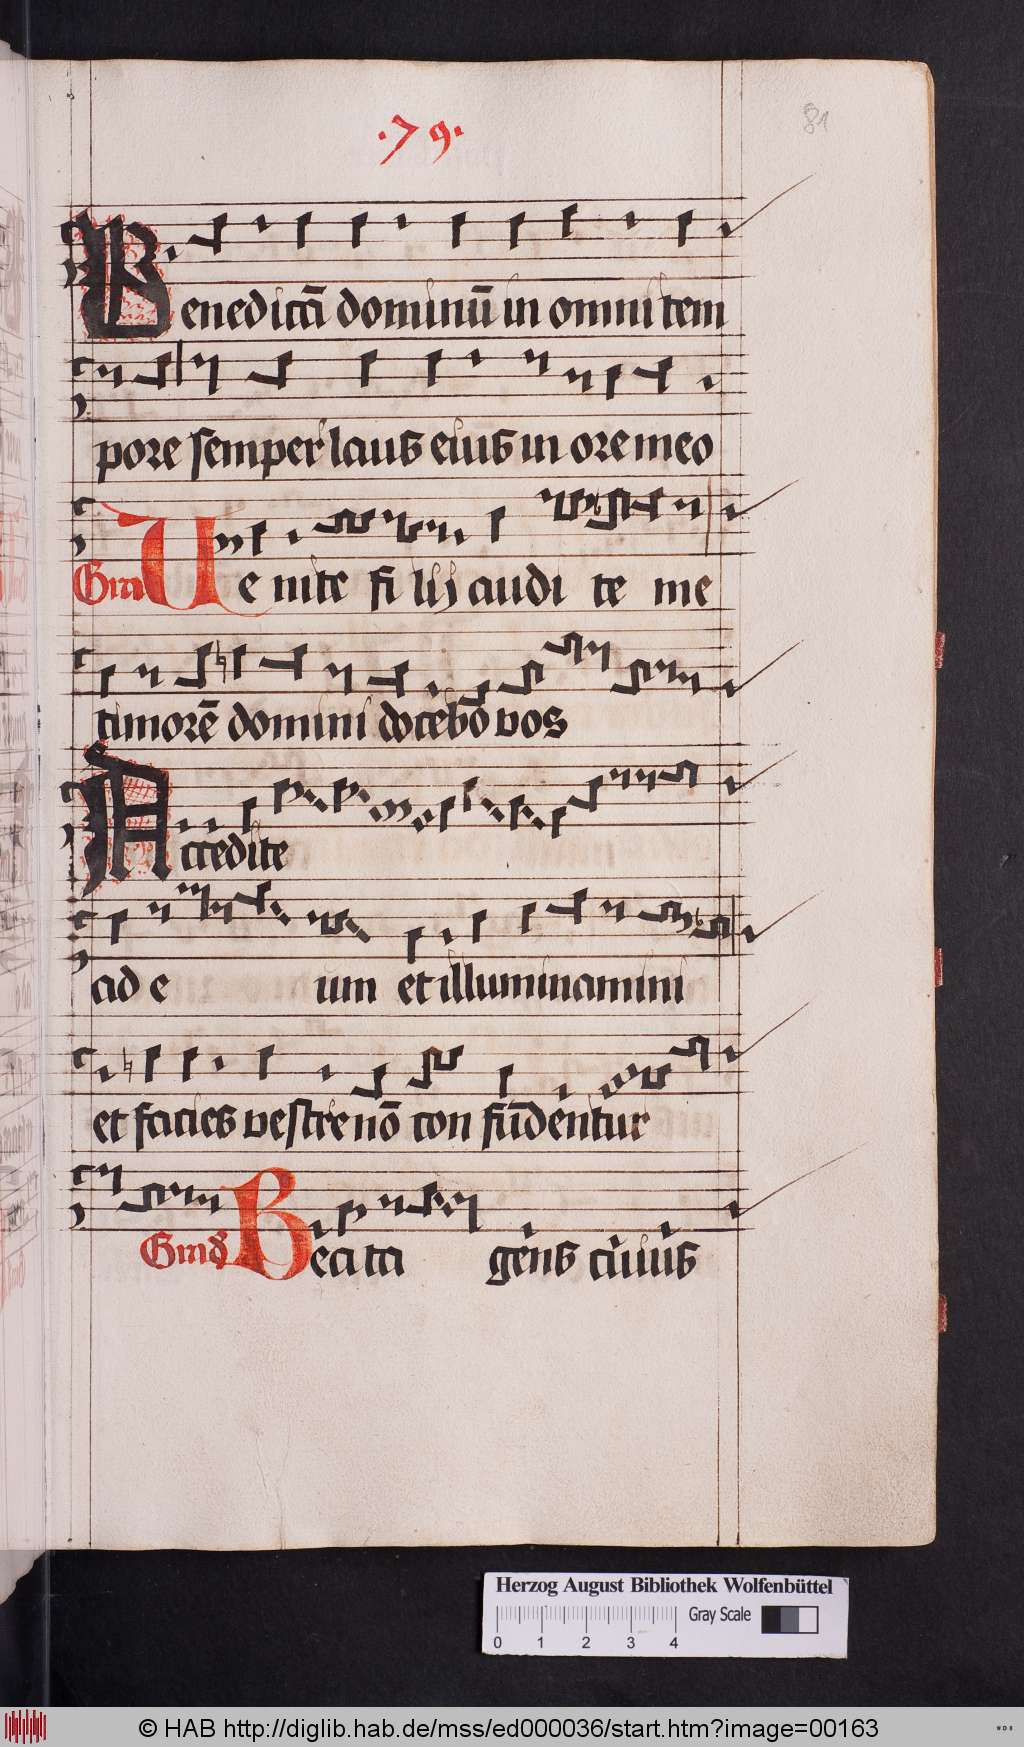 ·79·
81
Benedicā dominū in omni tem
pore semper laus eius in ore meo
Gra Ue nite fi lij audi te me
timorē domini docebo vos
Accedite
ad e um et illuminamini
et facies vestre nō con fūdentur
Grad Beata gens cuius
Herzog August Bibliothek Wolfenbüttel
Gray Scale
0 1 2 3 4
© HAB http://diglib.hab.de/mss/ed000036/start.htm?image=00163